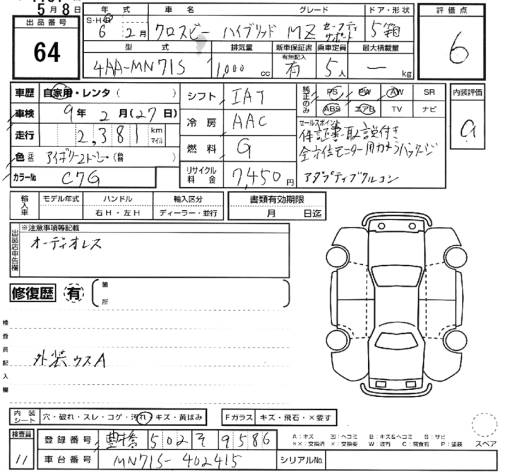 5月8日
出品番号
64
年式 車名 グレード ドア・形状 評価点
S・H・R
6年2月 クロスビー ハイブリッド MZ セーフティサポート 5 箱
型式 排気量 新車保証書 乗車定員 最大積載量
有無記入
4AA-MN71S 1,000 cc 有 5人 ー kg
6
車歴 自家用・レンタ
車検 9年2月(27日)
走行 2,381 km マイル
色 アイボリー
カラーNo C7G
シフト IAT
冷房 AAC
燃料 G
リサイクル料金 7,450円
純正のみ
PS PW AW SR
ABS エアB TV ナビ
セールスポイント
保証書・取説付き
全方位モニター用カメラパッケージ
アダプティブクルコン
内装評価
a
輸入車 モデル年式 ハンドル 輸入区分 書類有効期限
右H・左H ディーラー・並行 月 日迄
出品店申告欄
※注意事項等記載
オーディオレス
修復歴 有 箇所
検査員記入欄
外装ウスA
内装シート 穴・破れ・スレ・コゲ・汚れ・キズ・黄ばみ
Fガラス キズ・飛石・×要す
検査員
11
登録番号 豊橋 502 そ 9586
車台番号 MN71S-402415 シリアルNo
A:キズ U:ヘコミ B:キズ&ヘコミ S:サビ
W:波打 C:腐食 P:塗装
スペア